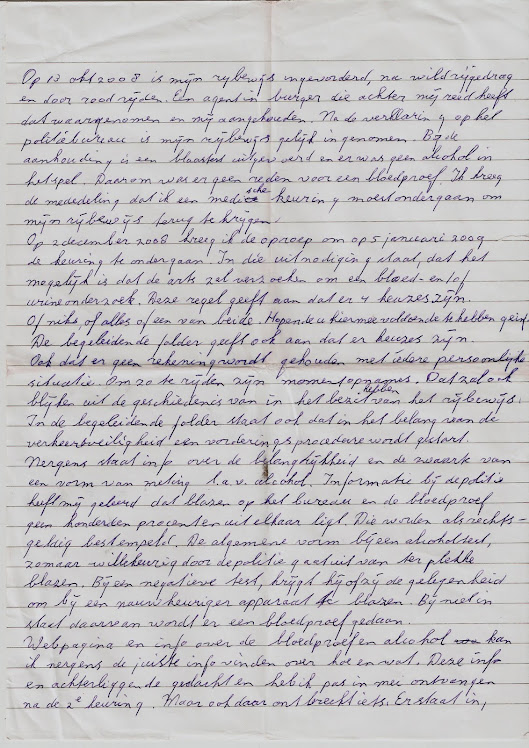 Op 13 okt 2008 is mijn rijbewijs ingevorderd, na wild rijgedrag
en door rood rijden. Een agent in burger die achter mij reed heeft
dat waargenomen en mij aangehouden. Na de verklaring op het
politiebureau is mijn rijbewijs gelijk ingenomen. Bij de
aanhouding is een blaastest uitgevoerd en er was geen alcohol in
het spel. Daarom was er geen reden voor een bloedproef. Ik kreeg
de mededeling dat ik een medische keuring moest ondergaan om
mijn rijbewijs terug te krijgen.
Op 2 december 2008 kreeg ik de oproep om op 5 januari 2009
de keuring te ondergaan. In die uitnodiging staat, dat het
mogelijk is dat de arts zal verzoeken om een bloed- en/of
urineonderzoek. Deze regel geeft aan dat er 4 keuzes zijn.
Of niks, of alles of een van beide. Hopende u hiermee voldoende te hebben
De begeleidende folder geeft ook aan dat er keuzes zijn.
Ook dat er geen rekening wordt gehouden met iedere persoonlijke
situatie. Om zo te rijden zijn momentopnames. Dat zal ook
blijken uit de geschiedenis van in het bezit hebben van het rijbewijs.
In de begeleidende folder staat ook dat in het belang van de
verkeersveiligheid een vorderingsprocedure wordt gestart.
Nergens staat info over de belangrijkheid en de zwaarte van
een vorm van meting t.a.v. alcohol. Informatie bij de politie
heeft mij geleerd dat blazen op het bureau en de bloedproef
geen honderden procenten uit elkaar ligt. Die worden als rechts-
geldig bestempeld. De algemene vorm bij een alcoholtest,
zomaar willekeurig door de politie gaat uit van ter plekke
blazen. Bij een negatieve test, krijgt hij of zij de gelegenheid
om bij een nauwkeuriger apparaat te blazen. Bij niet in
staat daarvan wordt er een bloedproef gedaan.
Webpagina en info over de bloedproef en alcohol kan
ik nergens de juiste info vinden over hoe en wat. Deze info
en achterliggende gedachten heb ik pas in mei ontvangen
na de 2e keuring. Maar ook daar ontbreekt iets. Er staat in,